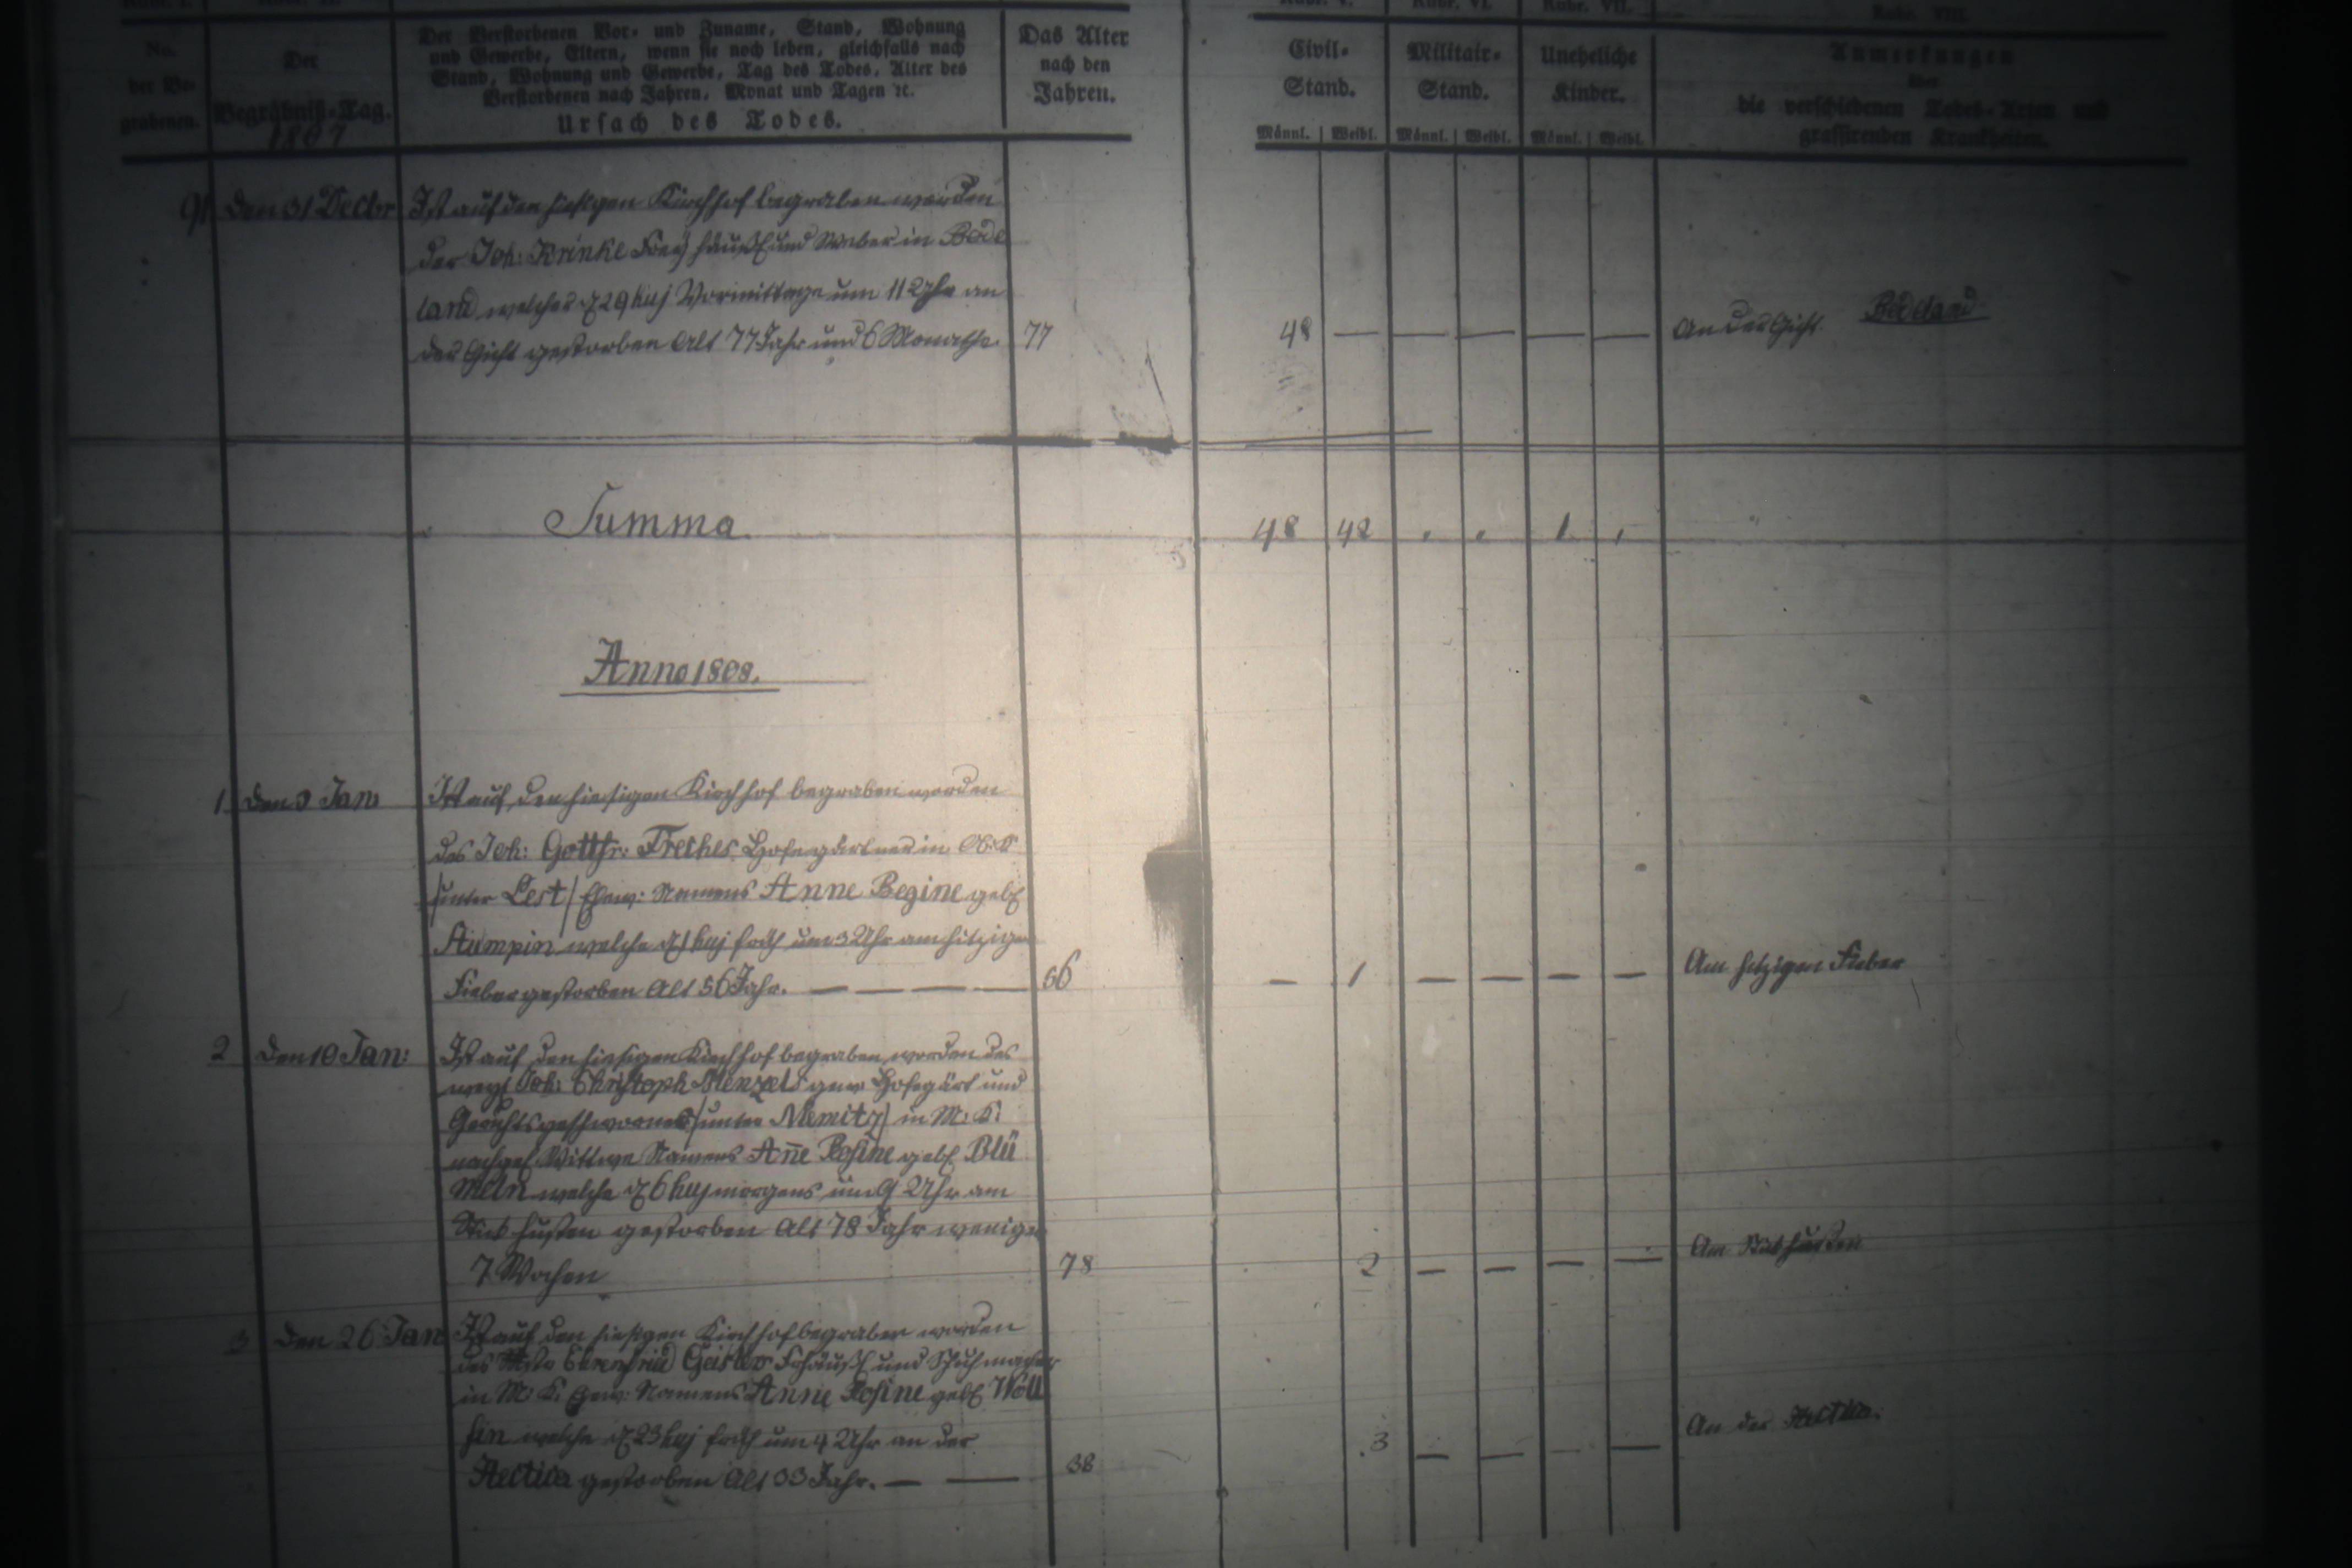 Rubr. V. Rubr. VI. Rubr. VII. Rubr. VIII.
No. der Be-grabenen.
Der Begräbniß-Tag.
1807
Der Verstorbenen Vor- und Zuname, Stand, Wohnung
und Gewerbe, Eltern, wenn sie noch leben, gleichfalls nach
Stand, Wohnung und Gewerbe, Tag des Todes, Alter des
Verstorbenen nach Jahren, Monat und Tagen ꝛc.
Ursach des Todes.
Das Alter
nach den
Jahren.
Civil-Stand.
Militair-Stand.
Uneheliche Kinder.
Männl. Weibl. Männl. Weibl. Männl. Weibl.
Anmerkungen
über
die verschiedenen Todes-Arten und
grassirenden Krankheiten.
91 den 31 Decbr Ist auf den hiesigen Kirchhof begraben worden
der Joh: Krinke Freyhäusl und Weber in Bode
land welcher d 29 huj Vormittage um 11 Uhr an
der Gicht gestorben Alt 77 Jahr und 6 Monathe. 77 48 — — — — — An der Gicht Bodeland
Summa. 48 42 1
Anno 1808.
1. den Jan Ist auf den hiesigen Kirchhof begraben worden
des Joh: Gottfr: Hofegärtner in
/unter Lest/ Ehew: Namens Anne Regine geb
welche d huj früh um 3 Uhr am hitzigen
Fieber gestorben Alt 56 Jahr. — — — — 56 — 1 — — — — Am hitzigen Fieber
2 den 10 Jan: Ist auf den hiesigen Kirchhof begraben worden des
weyl Joh: Christoph Menzels gew Hofegärt und
Gerichtsgeschwornes /unter Nemitz/ in M: K:
nachgel Wittwe Namens Añe Rosine geb Blü
meln welche d 6 huj morgens um 9 Uhr am
husten gestorben Alt 78 Jahr weniger
7 Wochen 78 2 — — — — Am
3 den 26 Jan Ist auf den hiesigen Kirchhof begraben worden
des Mstr Ehrenfried Geisler Frhäusl und Schuhmacher
in M: K. Ehew: Namens Anne Rosine geb Wöll
fin welche d 23 huj früh um 4 Uhr an der
Hectica gestorben Alt 38 Jahr. — — 38 3 — — — — An der Hectica.